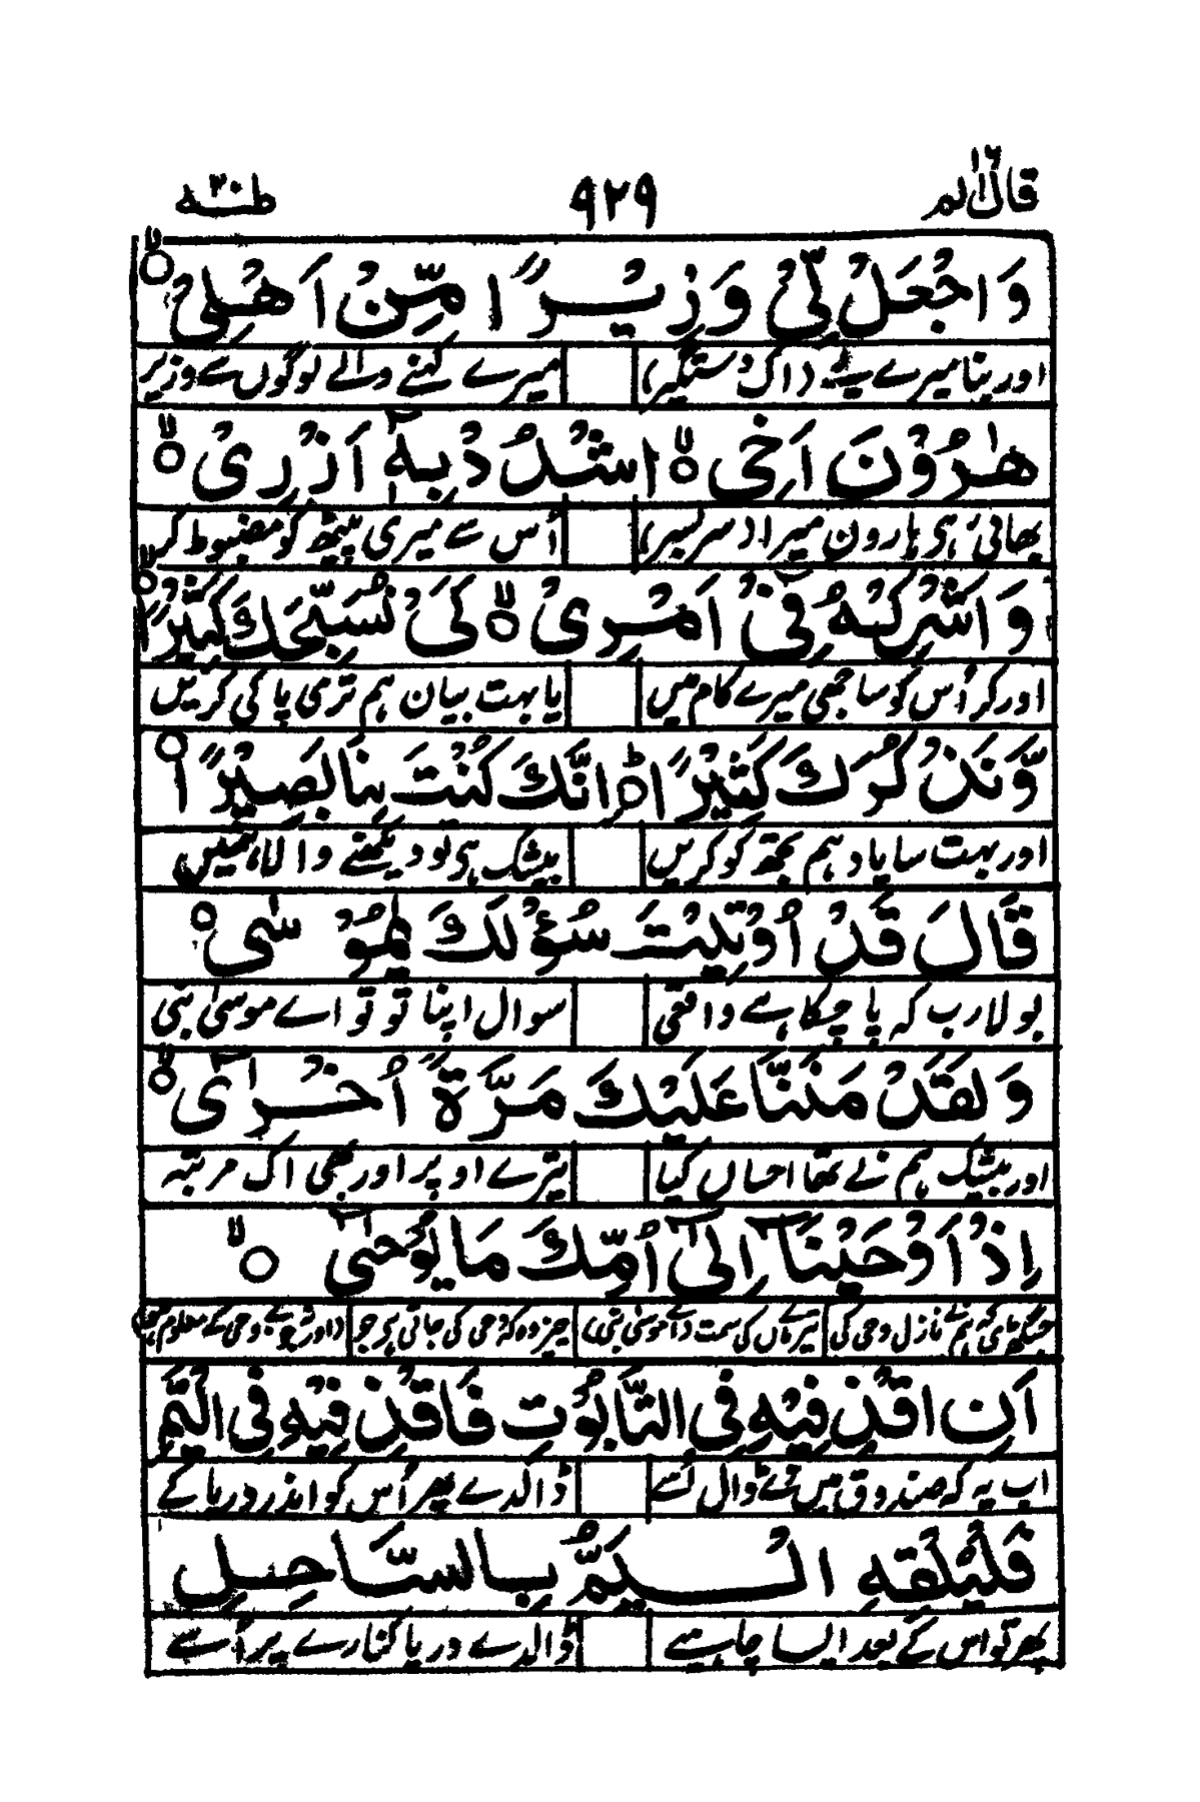 قال الم ١٦ ٩٢٩ طٰهٰ ٢٠
وَاجْعَلْ لِّیْ وَزِیْرًا مِّنْ اَهْلِیْ ۙ
اور بنا میرے لئے (اک دستگیر) میرے کنبے والے لوگوں سے وزیر
هٰرُوْنَ اَخِی ۙ اشْدُدْ بِهٖۤ اَزْرِیْ ۙ
بھائی ہی ہارون میرا (سربسر) اُس سے میری پیٹھ کو مضبوط کر
وَاَشْرِكْهُ فِیْۤ اَمْرِیْ ۙ كَیْ نُسَبِّحَكَ كَثِیْرًا ۙ
اور کر اُس کو ساجھی میرے کام میں یا بہت بیان ہم تری پاکی کریں
وَّنَذْكُرَكَ كَثِیْرًا ؕ اِنَّكَ كُنْتَ بِنَا بَصِیْرًا
اور بہت سا یاد ہم تجھ کو کریں بیشک ہی تو دیکھنے والا ہمیں
قَالَ قَدْ اُوْتِیْتَ سُؤْلَكَ یٰمُوْسٰی
بولا رب کہ پا چکا ہے واقعی سوال اپنا تو تو اے موسیٰ نبی
وَلَقَدْ مَنَنَّا عَلَیْكَ مَرَّةً اُخْرٰۤی ۙ
اور بیشک ہم نے تھا احساں کیا تیرے اوپر اور بھی اک مرتبہ
اِذْ اَوْحَیْنَاۤ اِلٰۤی اُمِّكَ مَا یُوْحٰۤی ۙ
ہم نے نازل وحی کی تیرے ماں کی سمت (اے موسیٰ نبی) چیز وہ کہ وحی کی جاتی ہے جو
اَنِ اقْذِفِیْهِ فِی التَّابُوْتِ فَاقْذِفِیْهِ فِی الْیَمِّ
اب یہ کہ صندوق میں تو ڈال اُسے ڈالدے پھر اُس کو اندر دریا کے
فَلْیُلْقِهِ الْیَمُّ بِالسَّاحِلِ
پھر تو اس کے بعد ایسا چاہیے ڈالدے دریا کنارے پر اُسے